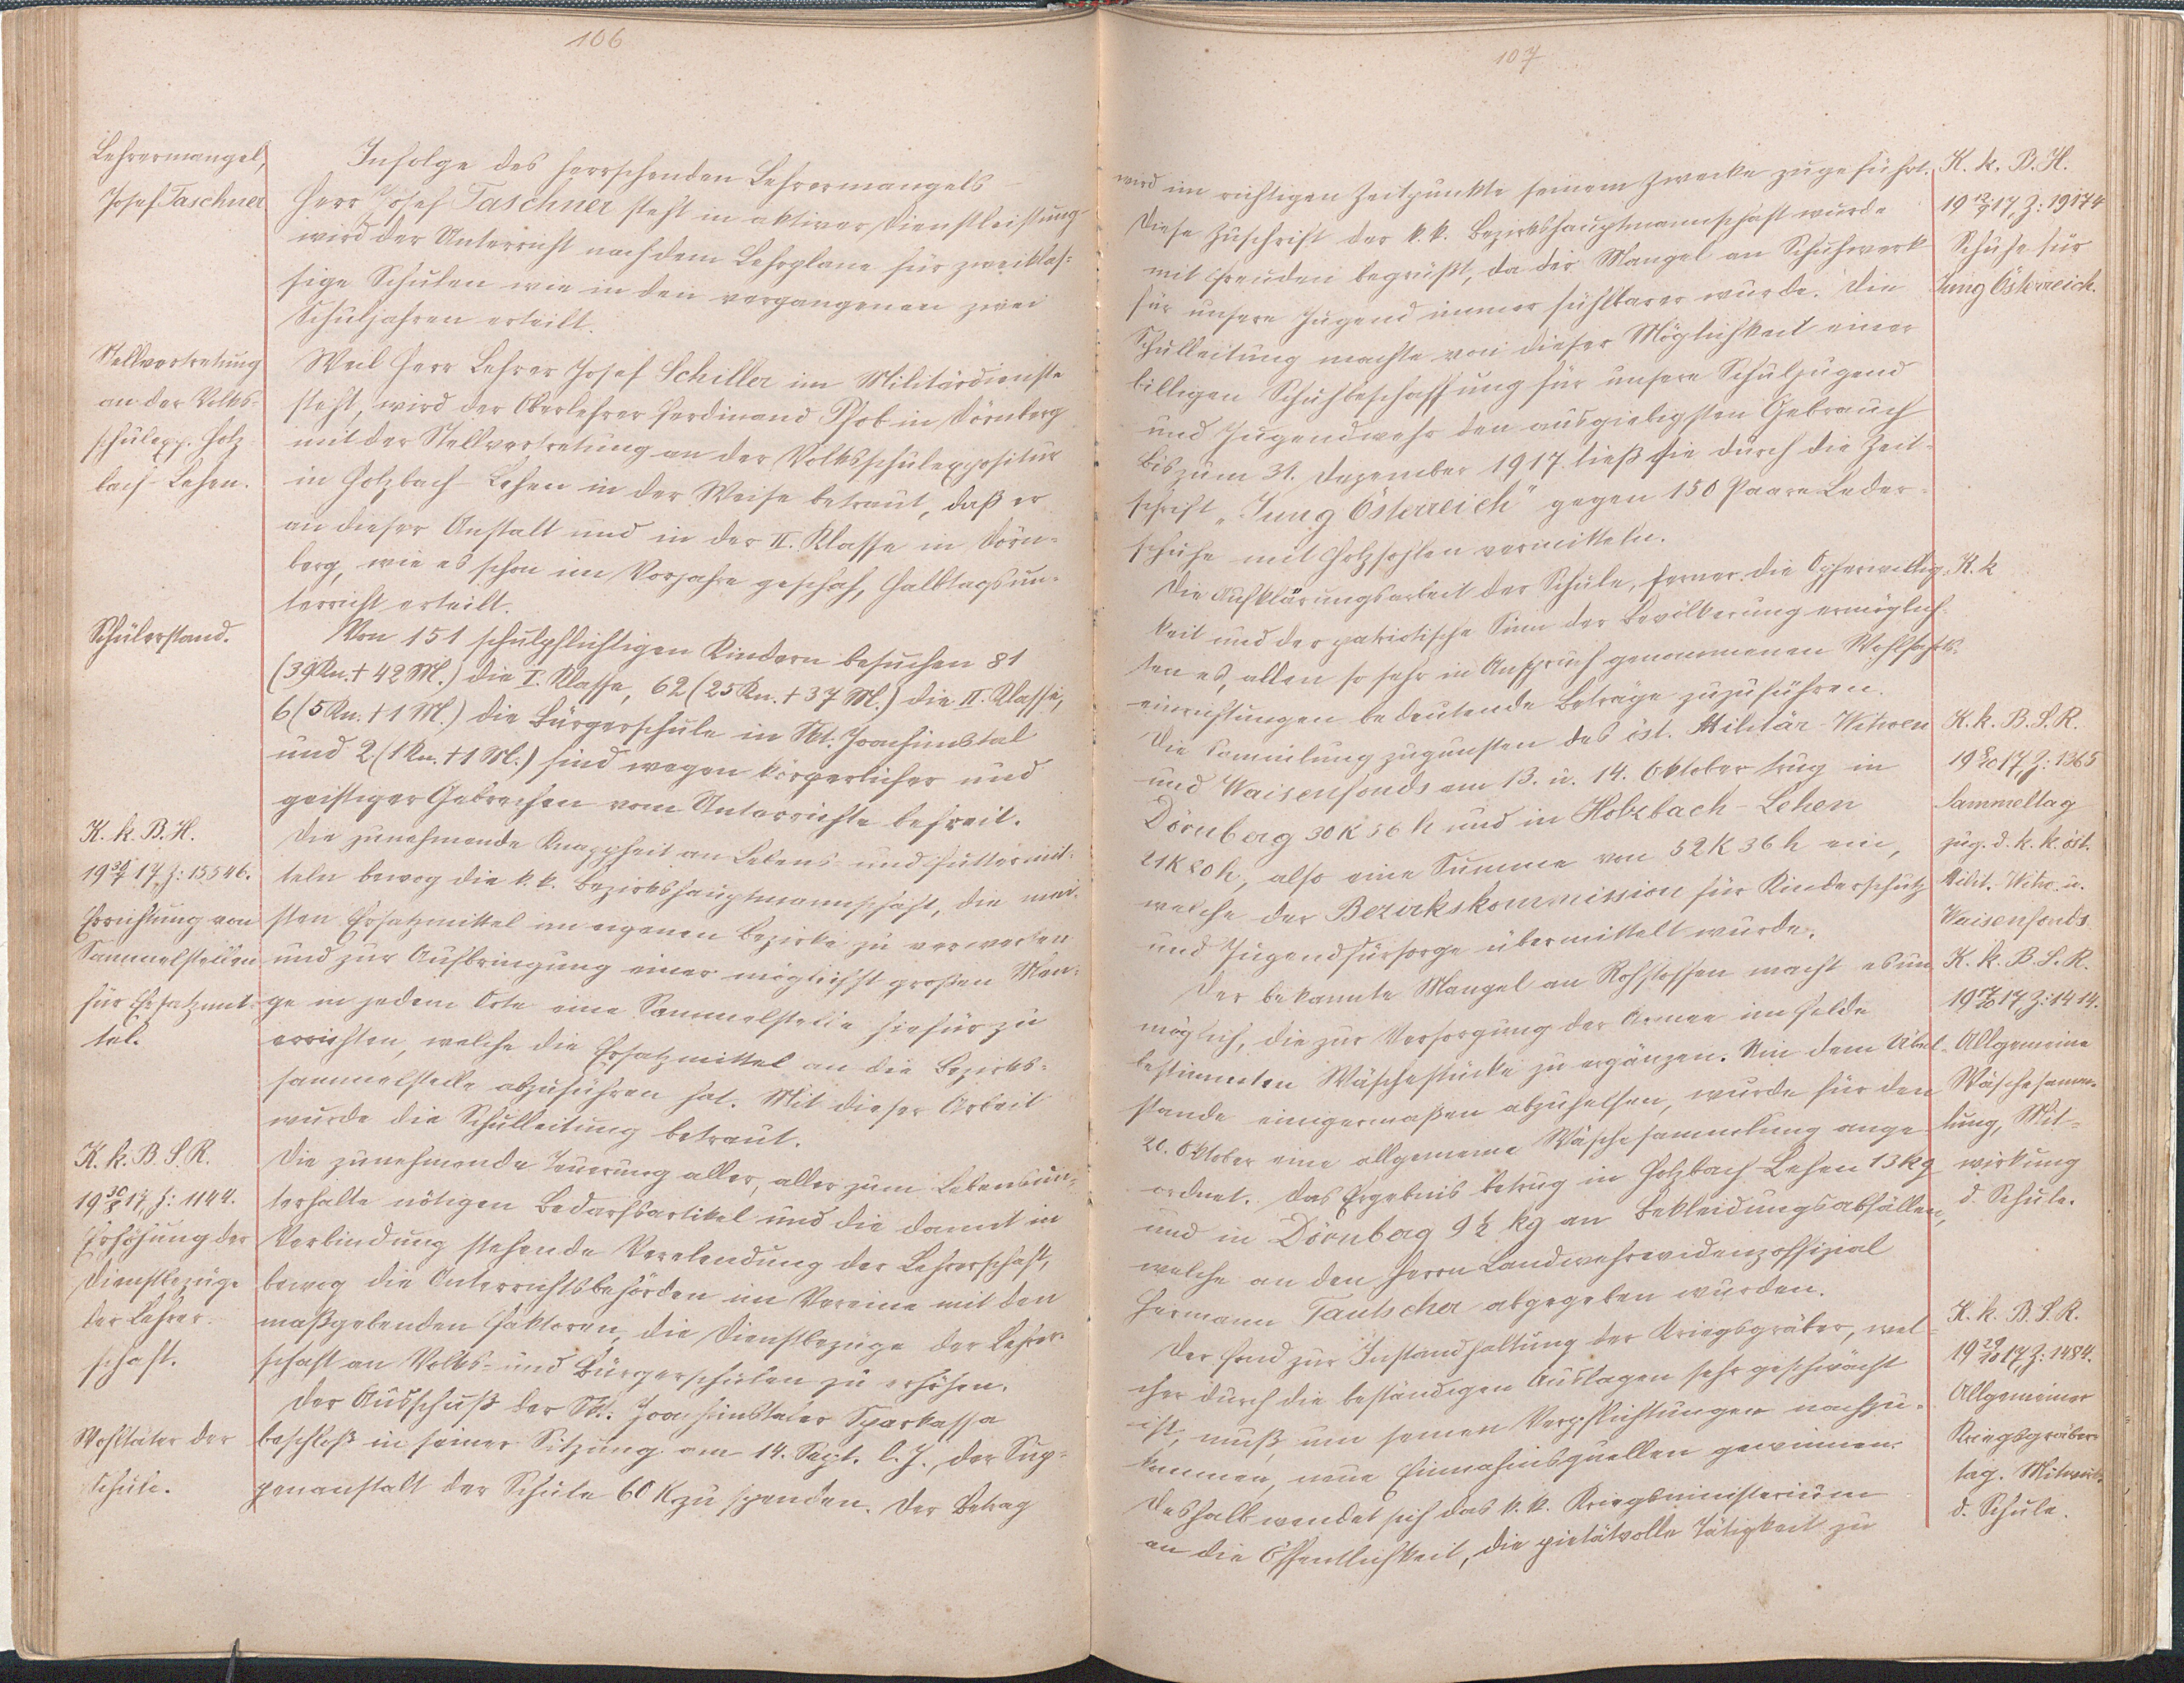 106
Lehrermangel,
Josef Taschner
Infolge des herrschenden Lehrermangels –
Herr Josef Taschner steht in aktiver Dienstleistung –
wird der Unterricht nach dem Lehrplane für zweiklas-
sige Schulen wie in den vergangenen zwei
Schuljahren erteilt.
Stellvertretung
an der Volks-
schulexp. Holz-
bach-Lehen.
Weil Herr Lehrer Josef Schiller im Militärdienste
steht, wird der Oberlehrer Ferdinand Pfob in Dörnberg
mit der Stellvertretung an der Volksschulexpositur
in Holzbach-Lehen in der Weise betraut, daß er
an dieser Anstalt und in der II. Klasse in Dörn-
berg, wie es schon im Vorjahre geschah, Halbtagsun-
terricht erteilt.
Schülerstand.
Von 151 schulpflichtigen Kindern besuchen 81
(39 Kn. + 42 M.) die I. Klasse, 62 (25 Kn. + 37 M.) die II. Klasse,
6 (5 Kn. + 1 M.) die Bürgerschule in Skt. Joachimstal
und 2 (1 Kn. + 1 M.) sind wegen körperlicher und
geistiger Gebrechen vom Unterrichte befreit.
K. k. B. H.
19 30/7 17, Z: 15546.
Errichtung von
Sammelstellen
für Ersatzmit-
tel.
Die zunehmende Knappheit an Lebens- und Futtermit-
teln bewog die k. k. Bezirkshauptmannschaft, die mei-
sten Ersatzmittel im eigenen Bezirke zu verwerten
und zur Aufbringung einer möglichst großen Men-
ge in jedem Orte eine Sammelstelle hiefür zu
errichten, welche die Ersatzmittel an die Bezirks-
sammelstelle abzuführen hat. Mit dieser Arbeit
wurde die Schulleitung betraut.
K. k. B. S. R.
19 30/8 17, Z: 1144.
Erhöhung der
Dienstbezüge
der Lehrer-
schaft.
Die zunehmende Teuerung aller, aller zum Lebensun-
terhalte nötigen Bedarfsartikel und die damit in
Verbindung stehende Verelendung der Lehrerschaft,
bewog die Unterrichtsbehörden im Vereine mit den
maßgebenden Faktoren, die Dienstbezüge der Lehrer-
schaft an Volks- und Bürgerschulen zu erhöhen.
Wohltäter der
Schule.
Der Ausschuß der Skt. Joachimstaler Sparkassa
beschloß in seiner Sitzung am 14. Sept. l. J., der Sup-
penanstalt der Schule 60 K zu spenden. Der Betrag
107
wird im richtigen Zeitpunkte seinem Zwecke zugeführt.
K. k. B. H.
19 12/9 17, Z: 19174
Schuhe für
Jung Österreich.
Diese Zuschrift der k. k. Bezirkshauptmannschaft wurde
mit Freuden begrüßt, da der Mangel an Schuhwerk
für unsere Jugend immer fühlbarer wurde. Die
Schulleitung machte von dieser Möglichkeit einer
billigen Schuhbeschaffung für unsere Schuljugend
und Jugendwehr den ausgiebigsten Gebrauch
Bis zum 31. Dezember 1917 ließ sie durch die Zeit-
schrift „Jung Österreich" gegen 150 Paare Leder-
schuhe mit Holzsohlen vermitteln.
K. k
Die Aufklärungsarbeit der Schule, ferner die Opferwillig-
keit und der patriotische Sinn der Bevölkerung ermöglich-
ten es, allen so sehr in Anspruch genommenen Wohlfahrts-
einrichtungen bedeutende Beträge zuzuführen.
K. k. B. S. R.
19 8/10 17, Z: 1365
Sammeltag
zug. d. k. k. öst.
Milit. Witw. u.
Waisenfonds
Die Sammlung zugunsten des öst. Militär-Witwen
und Waisenfonds am 13. u. 14. Oktober trug in
Dörnberg 30 K 56 h und in Holzbach-Lehen
21 K 80 h, also eine Summe von 52 K 36 h ein,
welche der Bezirkskommission für Kinderschutz
und Jugendfürsorge übermittelt wurde.
K. k. B. S. R.
19 17/10 17, Z: 1414.
Allgemeine
Wäschesamm-
lung, Mit-
wirkung
d. Schule.
Der bekannte Mangel an Rohstoffen macht es un-
möglich, die zur Versorgung der Armee im Felde
bestimmten Wäschestücke zu ergänzen. Um dem Übel-
stande einigermaßen abzuhelfen, wurde für den
20. Oktober eine allgemeine Wäschesammlung ange-
ordnet. Das Ergebnis betrug in Holzbach-Lehen 13 kg
und in Dörnberg 9½ kg an Bekleidungsabfällen,
welche an den Herrn Landwehrevidenzoffizial
Hermann Tautscher abgegeben wurden.
K. k. B. S. R.
19 29/10 17, Z: 1484.
Allgemeiner
Kriegsgräber-
tag. Mitwirk.
d. Schule.
Der Fond zur Instandhaltung der Kriegsgräber, wel-
cher durch die beständigen Auslagen sehr geschwächt
ist, muß, um seinen Verpflichtungen nachzu-
kommen, neue Einnahmsquellen gewinnen.
Deshalb wendet sich das k. k. Kriegsministerium
an die Öffentlichkeit, die pietätvolle Tätigkeit zu